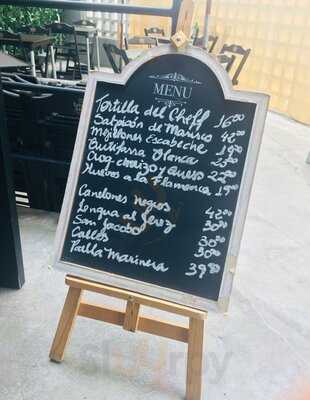 MENU
Tortilla del Cheff 16.00
Salpicón de Marisco 42.00
Mejillones Escabeche 19.00
Butifarra Blanca 25.00
Queso 22.00
Huevos a la Flamenca 19.00
Canelones negros 42.00
Lengua al Jerez 30.00
San Jacobo 30.00
Callos 30.00
Paella Marinera 39.80
Sluurpy